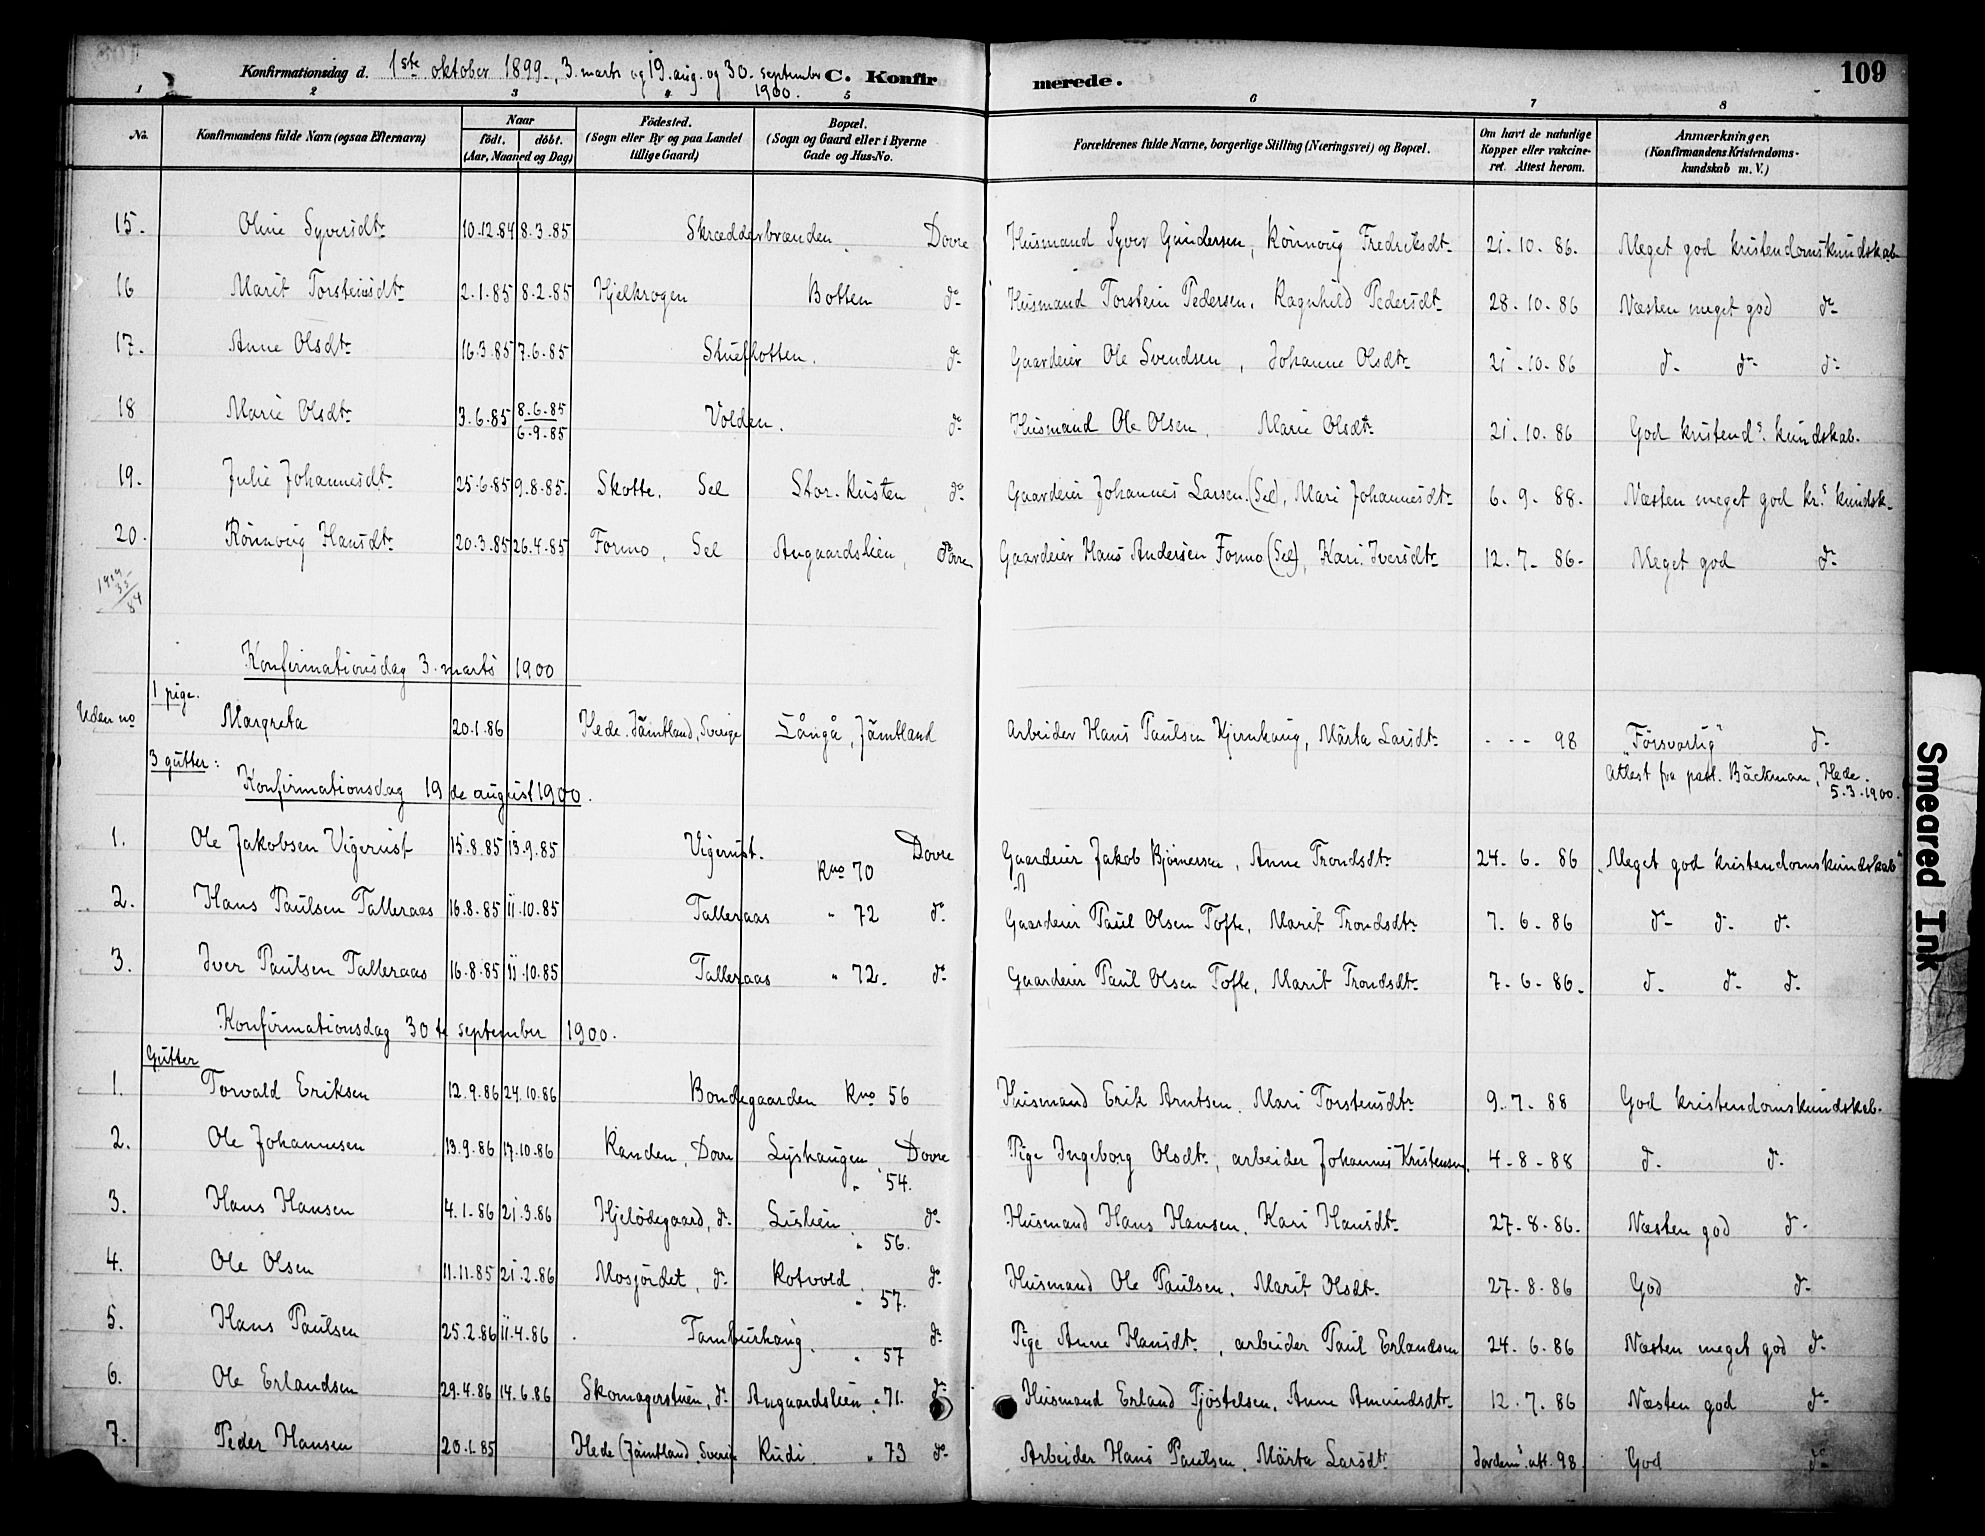 Konfirmationsdag d. 1ste oktober 1899, 3. marts og 19. aug. og 30. september 1900. C. Konfirmerede. 109
1 2 3 4 5 6 7 8
No. Konfirmandens fulde Navn (ogsaa Efternavn) Naar født. døbt. (Aar, Maaned og Dag) Fødested. (Sogn eller By og paa Landet tillige Gaard) Bopæl. (Sogn og Gaard eller i Byerne Gade og Hus-No. Forældrenes fulde Navne, borgerlige Stilling (Næringsvei) og Bopæl. Om havt de naturlige Kopper eller vakcineret. Attest herom. Anmærkninger. (Konfirmandens Kristendomskundskab m. V.)
15. Oline Syversdtr 10.12.84 8.3.85 Skrædderbrænden, Dovre Husmand Syver Gundersen, Rønnoug Fredriksdtr 21-10-86. Meget god kristendomskundskab
16 Marit Torsteinsdtr 2.1.85 8.2.85 Hjelkrogen Botten do Husmand Torstein Pedersen, Ragnhild Pedersdtr 28-10-86 Næsten meget god do
17. Anne Olsdtr 16.3.85 7.6.85 Stueflotten. do Gaardeier Ole Svendsen, Johanne Olsdtr 21-10-86 do do do
18 Marie Olsdtr 3.6.85 8.6.85 6.9.85 Volden. do Husmand Ole Olsen, Marie Olsdtr 21-10-86 God kristends. kundskab.
19. Julie Johannesdtr 25.6.85 9.8.85. Skotte, Sel Stor-Kusten, do Gaardeier Johannes Larsen (Sel), Mari Johannesdtr 6-9-88- Næsten meget god kr.s kundsk.
20. Rønnoug Hansdtr 20.3.85 26.4.85 Formo, Sel Angaardslien, Dovre Gaardeier Hans Andersen Formo (Sel), Kari Iversdtr 12.7-86- Meget god do
Konfirmationsdag 3. marts 1900
1 pige.
Uden no Margreta 20.1.86 Hede. Jämtland, Sverige Långå, Jämtland Arbeider Hans Paulsen Kjernhaug, Märta Larsdtr - - - 98 "Försvarlig" do
Attest fra past. Bäckman, Hede. 5.3.1900.
3 gutter:
Konfirmationsdag 19de august 1900.
1. Ole Jakobsen Vigerust 15.8.85 13.9.85 Vigerust. Kno 70 Dovre Gaardeier Jakob Bjørnersen, Anne Trondsdtr 24-6-86 "Meget god kristendomskundskab"
2. Hans Paulsen Talleraas 16.8.85 11.10.85 Talleraas " 72 do Gaardeier Paul Olsen Tofte, Marit Trondsdtr 7-6-86 do do do
3. Iver Paulsen Talleraas 16.8.85 11.10.85 Talleraas " 72. do Gaardeier Paul Olsen Tofte, Marit Trondsdtr 7-6-86- do do do
Konfirmationsdag 30te september 1900.
Gutter
1. Torvald Eriksen 12.9.86 24.10.86 Bondegaarden Kno 56 Husmand Erik Arntsen. Mari Torstensdtr 9-7-88 God kristendomskundskab.
2. Ole Johannesen 13.9.86 17.10.86 Randen, Dovre Lyshaugen, Dovre " 54. Pige Ingeborg Olsdtr, arbeider Johannes Kristensen. 4-8-88 do do
3. Hans Hansen 4.1.86 21.3.86 Hjelødegaard, do Lislien do " 56. Husmand Hans Hansen. Kari Hansdtr 27-8-86. Næsten god do
4. Ole Olsen 11.11.85 21.2.86 Mosjordet, do Rotvold do " 57. Husmand Ole Paulsen. Marit Olsdtr 27-8-86 God do
5. Hans Paulsen 25.2.86 11.4.86 Tamburhaug. do " 57 Pige Anne Hansdtr, arbeider Paul Erlandsen 24-6-86 Næsten meget god do
6. Ole Erlandsen 29.4.86 14.6.86 Skomagerstuen, do Angaardslien " 71. do Husmand Erland Tjøstelsen, Anne Amundsdtr 12.7.86 Næsten god do
7. Peder Hansen 20.1.85 Hede (Jämtland, Sverige Rudi. " 73 do Arbeider Hans Paulsen. Märta Larsdtr Jordem.s att. 98. God do
Smeared Ink